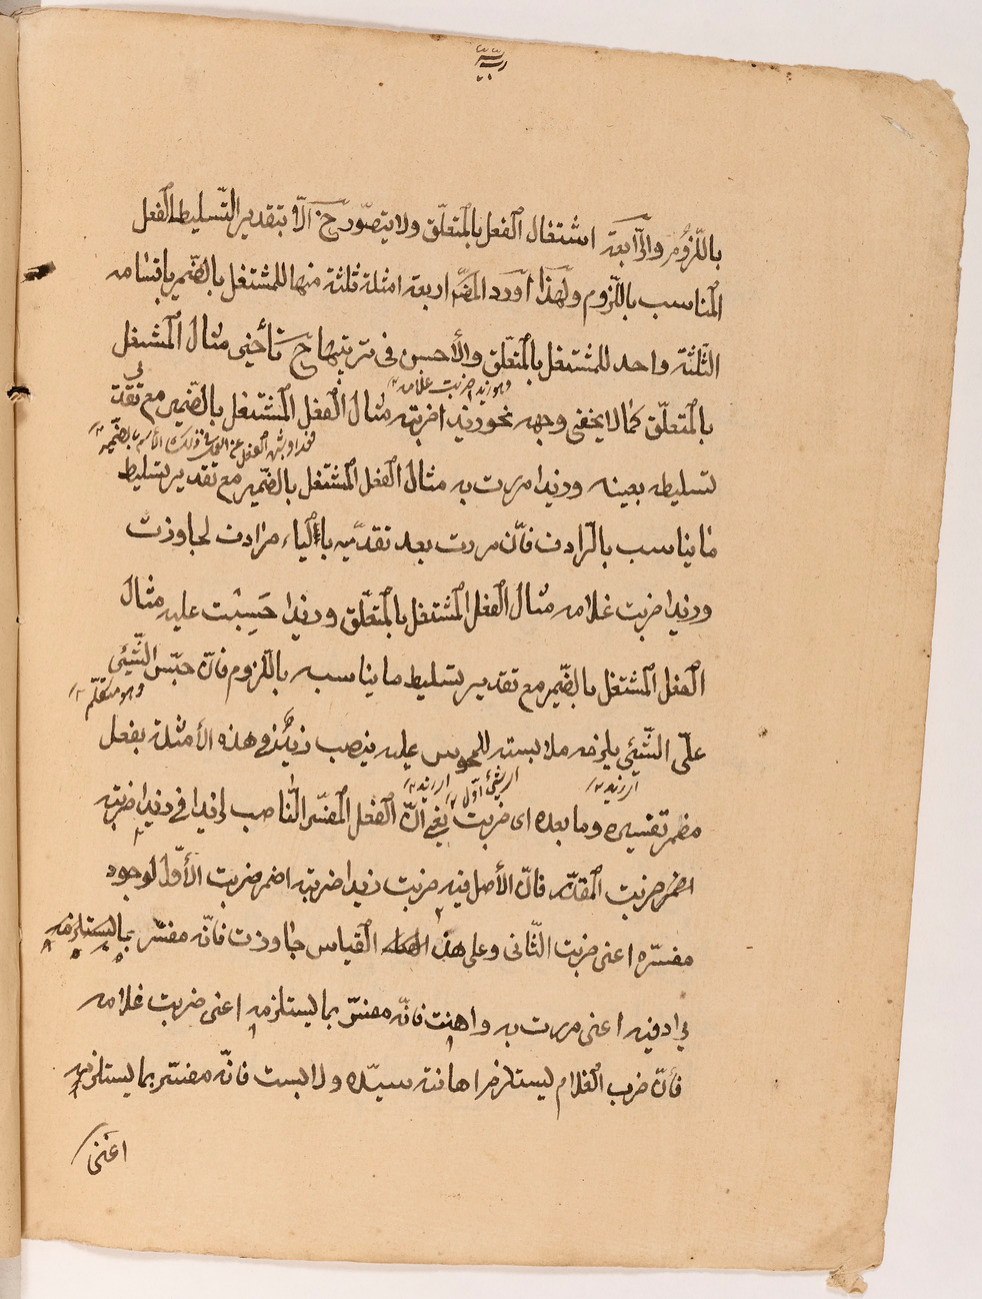 باللّزوم والرّابعة اشتغال الفعل بالمتعلّق ولا يتصوّر ح الّا بتقدير التّسليط الفعل
المناسب باللّزوم ولهذا اورد المصّ اربعة امثلة ثلثة منها للمشتغل بالضّمير باقسامه
الثّلثة واحد للمشتغل بالمتعلّق والأحسن فى ترتيبها ح تأخير مثال المشتغل
وهو زيدا ضربت غلامه
بالمتعلّق كما لا يخفى وجهه نحو زيدا ضربته مثال الفعل المشتغل بالضّمير مع تقدير
تسليطه بعينه وزيدا مررت به مثال الفعل المشتغل بالضّمير مع تقدير تسليط
ما يناسب بالترادف فانّ مررت بعد تقديّه بالباء مرادف لجاوزت
وزيدا ضربت غلامه مثال الفعل المشتغل بالمتعلّق وزيدا حبست عليه مثال
الفعل المشتغل بالضّمير مع تقدير تسليط ما يناسبه باللّزوم فانّ حبس الشّيئ
وهو متكلّم
على الشّيئ يلزمه ملابسته للمحبوس عليه ينصب زيدٌ فى هذه الأمثلة بفعل
اى زيد
اى شيئ اوّل
اى زيد
مضمر تفسيره وما بعده اى ضربت يعنى انّ الفعل المفسّر النّاصب لزيدا فى زيدا ضربته
اضمر ضربت المقدّر فانّ الأصل فيه ضربت زيدا ضربته اضمر ضربت الأوّل لوجود
مفسّره اعنى ضربت الثّانى وعلى هذا القياس جاوزت فانّه مفسّر بما يستلزمه
يرادفه اعنى مررت به واهنت فانّه مفسّر بما يستلزمه اعنى ضربت غلامه
فانّ ضرب الغلام يستلزم اهانة سيّده ولابست فانّه مفسّر بما يستلزمه
اعنى